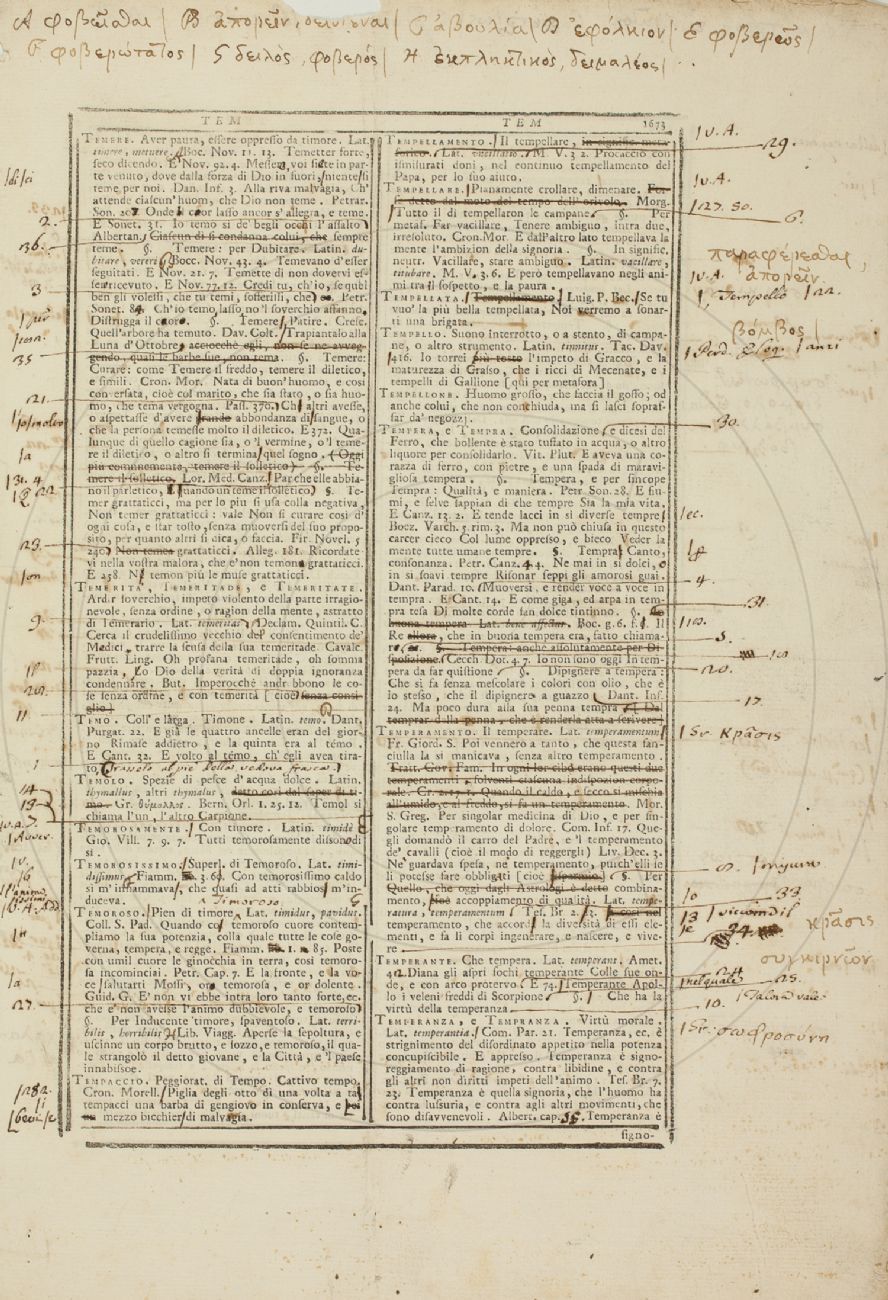 Α φοβεῖσθαι | Β ἀπορεῖν, | C ἀβουλία | D ἐφόλκιον | E φοβερῶς |
F φοβερώτατος | G δειλὸς, φοβερός | H ἐκπληκτικὸς, δειμαλέος |
TEM
TEMERE. Aver paura, essere oppresso da timore. Lat.
timere, metuere. Boc. Nov. 11. 13. Temetter forte,
seco dicendo. E Nov. 92. 4. Messer, voi siete in par-
te venuto, dove dalla forza di Dio in fuori, niente si
teme per noi. Dan. Inf. 3. Alla riva malvagia, Ch'
attende ciascun' huom, che Dio non teme. Petrar.
Son. 207. Onde 'l cuor lasso ancor s'allegra, e teme.
E Sonet. 31. Io temo sì de' begli occhi l'assalto
Albertan. Giascun di si condanna colui, che sempre
teme. §. Temere: per Dubitare. Latin. du-
bitare, vereri. Bocc. Nov. 43. 4. Temevano d'esser
seguitati. E Nov. 21. 7. Temette di non dovervi es-
ser ricevuto. E Nov. 77. 12. Credi tu, ch'io, se quel
ben gli volessi, che tu temi, sofferissi, che Petr.
Sonet. 84. Ch'io temo, lasso, no 'l soverchio affanno,
Distrugga il cuore. §. Temere, Patire. Cresc.
Quell'arbore ha temuto. Dav. Colt. Trapiantalo alla
Luna d'Ottobre, acciocchè egli, non se ne avveg-
gendo, quasi le barbe sue, non tema. §. Temere:
Curare: come Temere il freddo, temere il diletico,
e simili. Cron. Mor. Nata di buon' huomo, e così
conversata, cioè col marito, che sia stato, o sia huo-
mo, che tema vergogna. Pass. 370. Chi altri avesse,
o aspettasse d'avere grande abbondanza di sangue, o
che la persona temesse molto il diletico. E 372. Qua-
lunque di quello cagione sia, o 'l vermine, o 'l teme-
re il diletico, o altro si termina quel sogno. (Oggi
più comunemente, temere il solletico) §. Te-
mere il solletico. Lor. Med. Canz. Par che elle abbia-
no il parletico, quando un teme il solletico) §. Te-
mer grattaticci, ma per lo più si usa colla negativa,
Non temer grattaticci: vale Non si curare così d'
ogni cosa, e star tosto, senza muoversi del suo propo-
sito, per quanto altri si dica, o faccia. Fir. Novel. 5
240. Non temea grattaticci. Alleg. 181. Ricordate-
vi nella vostra malora, che e' non temono grattaticci.
E 258. Nè temon più le muse grattaticci.
TEMERITÀ, TEMERITADE, e TEMERITATE.
Ardir soverchio, impeto violento della parte irragio-
nevole, senza ordine, o ragion della mente, astratto
di Temerario. Lat. temeritas. Declam. Quintil. C.
Cerca il crudelissimo vecchio del consentimento de'
Medici, trarre la sensa della sua temeritade. Cavalc.
Frutt. Ling. Oh profana temeritade, oh somma
pazzia, Lo Dio della verità di doppia ignoranza
condennare. But. Imperocchè andrebbono le co-
se senza ordine, e con temerità [cioè senza consi-
glio]
TEMO. Coll' e larga. Timone. Latin. temo. Dant.
Purgat. 22. E già le quattro ancelle eran del gior-
no Rimase addietro, e la quinta era al témo.
E Cant. 32. E volto al temo, ch'egli avea tira-
to,
TEMOLO. Spezie di pesce d'acqua dolce. Latin.
thymallus, altri thymalus, detto così dal saper di ti-
mo. Gr. θύμαλλος. Bern. Orl. 1. 25. 12. Temol si
chiama l'un, l'altro Carpione.
TEMOROSAMENTE. Con timore. Latin. timidè
Gio. Vill. 7. 9. 7. Tutti temorosamente disson di
sì.
TEMOROSISSIMO. Superl. di Temoroso. Lat. timi-
dissimus. Fiamm. 3. 69. Con temorosissimo caldo
sì m'infiammava, che quasi ad atti rabbiosi m'in-
duceva.
Temoroso
TEMOROSO. Pien di timore. Lat. timidus, pavidus.
Coll. S. Pad. Quando col temoroso cuore contem-
pliamo la sua potenzia, colla quale tutte le cose go-
verna, tempera, e regge. Fiamm. 1. 85. Poste
con umil cuore le ginocchia in terra, così temoro-
sa incominciai. Petr. Cap. 7. E la fronte, e la vo-
ce salutarti Mossi, or temorosa, e or dolente.
Guid. G. E' non vi ebbe intra loro tanto forte, ec.
che e' non avesse l'animo dubbievole, e temoroso
§. Per Inducente timore, spaventoso. Lat. terri-
bilis, horribilis. Lib. Viagg. Aperse la sepoltura, e
uscinne un corpo brutto, e sozzo, e temoroso, il qua-
le strangolò il detto giovane, e la Città, e 'l paese
innabissoe.
TEMPACCIO. Peggiorat. di Tempo. Cattivo tempo.
Cron. Morell. Piglia degli otto dì una volta a ta'
tempacci una barba di gengiovo in conserva, e
mezzo bicchier di malvagìa.
TEM 1673
TEMPELLAMENTO. Il tempellare, in signific. meta-
forico. Lat. vacillatio. M. V. 3 2. Procacciò con
isinisurati doni, nel continuo tempellamento del
Papa, per lo suo aiuto.
TEMPELLARE. Pianamente crollare, dimenare. For-
se detto dal moto del tempo dell'orivolo. Morg.
Tutto il dì tempellaron le campane. §. Per
metaf. Far vacillare, Tenere ambiguo, intra due,
irresoluto. Cron. Mor. E dall'altro lato tempellava la
mente l'ambizion della signoria. §. In signific.
neutr. Vacillare, stare ambiguo. Latin. vacillare,
titubare. M. V. 3. 6. E però tempellavano negli ani-
mi tra il sospetto, e la paura.
TEMPELLATA. Tempellamento. Luig. P. Bec. Se tu
vuo' la più bella tempellata, Noi verremo a sonar-
ti una brigata.
TEMPELLO. Suono interrotto, o a stento, di campa-
ne, o altro strumento. Latin. tinnitus. Tac. Dav.
416. Io torrei più tosto l'impeto di Gracco, e la
maturezza di Grasso, che i ricci di Mecenate, e i
tempelli di Gallione [qui per metafora]
TEMPELLONE. Huomo grosso, che faccia il goffo; od
anche colui, che non conchiuda, ma si lasci sopraf-
far da' negozzj.
TEMPERA, e TEMPRA. Consolidazione, e dicesi del
Ferro, che bollente è stato tuffato in acqua, o altro
liquore per consolidarlo. Vit. Plut. E aveva una co-
razza di ferro, con pietre, e una spada di maravi-
gliosa tempera. §. Tempera, e per sincope
Tempra: Qualità, e maniera. Petr. Son. 28. E fiu-
mi, e selve sappian di che tempre Sia la mia vita,
E Canz. 13. 2. E tende lacci in sì diverse tempre.
Boez. Varch. 5. rim. 3. Ma non può chiusa in questo
carcer cieco Col lume oppresso, e bieco Veder la
mente tutte umane tempre. §. Tempra, Canto,
consonanza. Petr. Canz. 44. Ne mai in sì dolci, o
in sì soavi tempre Risonar seppi gli amorosi guai.
Dant. Parad. 10. Muoversi, e render voce a voce in
tempra. E Cant. 14. E come giga, ed arpa in tem-
pra tesa Di molte corde fan dolce tintinno. §.
buona tempera Lat. bene affectus. Boc. g. 6. f. Il
Re allora, che in buona tempera era, fatto chiama-
re §. Tempera: anche assolutamente per Di-
sposizione. Cecch. Dot. 4. 7. Io non sono oggi In tem-
pera da far quistione §. Dipignere a tempera:
Che si fa senza mescolare i colori con olio, che è
lo stesso, che il dipignere a guazzo. Dant. Inf.
24. Ma poco dura alla sua penna tempra [Dal
temprar della penna, che è renderla atta a scrivere]
TEMPERAMENTO. Il temperare. Lat. temperamentum.
Fr. Giord. S. Poi vennero a tanto, che questa fan-
ciulla la si manicava, senza altro temperamento.
Tratt. Gov. Fam. In ogni lor cibo erano questi due
temperamenti, solventi ciascuna indisposizion corpo-
rale. Cr. 2. 17. 1. Quando il caldo, e secco si mischia
all'umido, e al freddo, si fa un temperamento. Mor.
S. Greg. Per singolar medicina di Dio, e per sin-
golare temperamento di dolore. Com. Inf. 17. Que-
gli domandò il carro del Padre, e 'l temperamento
de' cavalli (cioè il modo di reggergli) Liv. Dec. 3.
Nè guardava spesa, ne temperamento, purch'elli le
li potesse fare obbligati [cioè risparmio] §. Per
Quello, che oggi dagli Astrologi è detto combina-
mento, cioè accoppiamento di qualità. Lat. tempe-
ratura, temperamentum. Tes. Br 2. 3.
temperamento, che accorda la diversità di essi ele-
menti, e fa li corpi ingenerare, e nascere, e vive-
re
TEMPERANTE. Che tempera. Lat. temperans. Amet.
42. Diana gli aspri fochi temperante Colle sue on-
de, e con arco protervo. E 74. Temperante Apol-
lo i veleni freddi di Scorpione §. Che ha la
virtù della temperanza
TEMPERANZA, e TEMPRANZA. Virtù morale.
Lat. temperantia. Com. Par. 21. Temperanza, ec. è
strignimento del disordinato appetito nella potenza
concupiscibile. E appresso. Temperanza è signo-
reggiamento di ragione, contra libidine, e contra
gli altri non diritti impeti dell'animo. Tes. Br. 7.
23. Temperanza è quella signoria, che l'huomo ha
contra lussuria, e contra agli altri movimenti, che
sono disavvenevoli. Albert. cap. Temperanza è
signo-
2.
36.
3
35
21.
23.
9.
20.
11
14
13
27.
1282
v. A.
29.
v. A.
27. 50.
6.
παραφέρεσθαι,
ἀπορεῖν
v. A.
Tempello 22.
βόμβος
30.
ec.
4.
31
5.
20.
17.
Gr κρᾶσις
33
13
34
κρᾶσις
24
25.
10.
Gr. σωφροσύνη